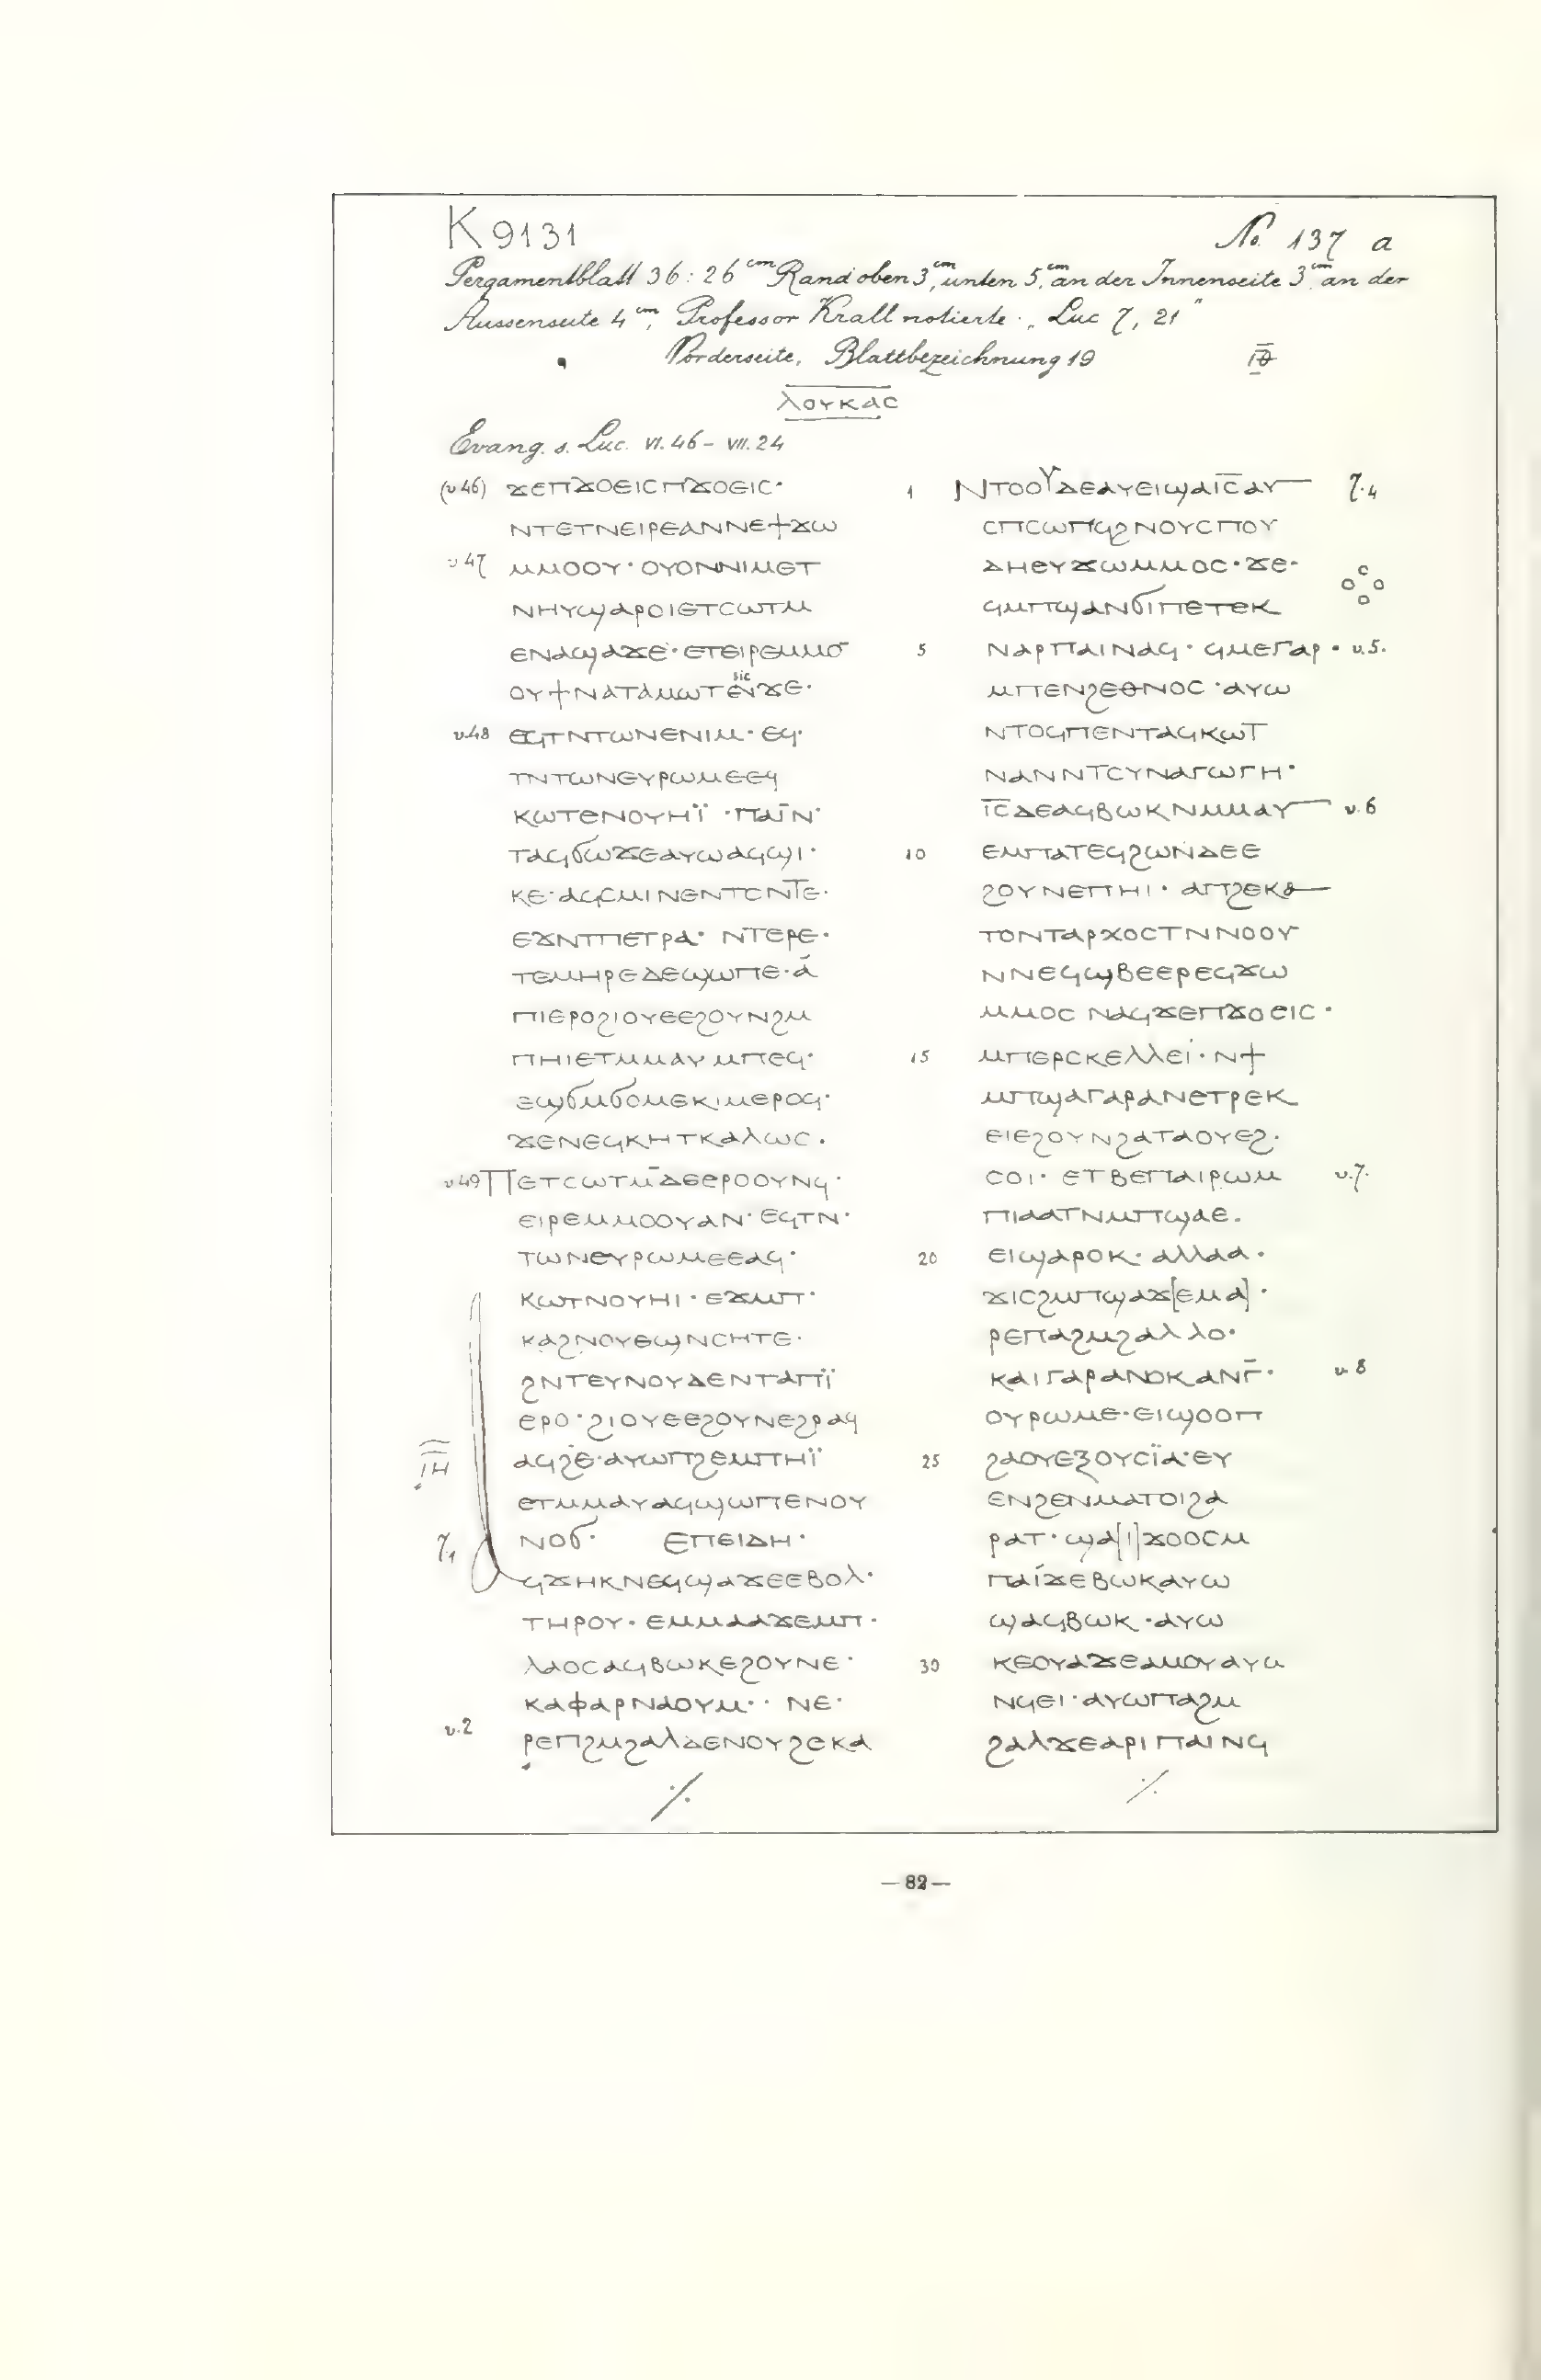 K 9131 No. 137 a
Pergamentblatt 36 : 26 cm Rand oben 3 cm, unten 5 cm, an der Innenseite 3 cm, an der
Aussenseite 4 cm, Professor Krall notierte „Luc 7, 21"
Vorderseite, Blattbezeichnung 19 ⲓⲑ
ⲗⲟⲩⲕⲁⲥ
Evang. s. Luc. VI. 46 – VII. 24
(v 46) ϫⲉⲡϫⲟⲉⲓⲥⲡϫⲟⲉⲓⲥ·
ⲛⲧⲉⲧⲛⲉⲓⲣⲉⲁⲛⲛⲉϯϫⲱ
v 47 ⲙⲙⲟⲟⲩ·ⲟⲩⲟⲛⲛⲓⲙⲉⲧ
ⲛⲏⲩϣⲁⲣⲟⲓⲉⲧⲥⲱⲧⲙ
ⲉⲛⲁϣⲁϫⲉ·ⲉⲧⲉⲓⲣⲉⲙⲙⲟ̄
ⲟⲩϯⲛⲁⲧⲁⲙⲱⲧⲉⲛ̄ϫⲉ· sic
v.48 ⲉϥⲧⲛⲧⲱⲛⲉⲛⲓⲙ·ⲉϥ·
ⲧⲛⲧⲱⲛⲉⲩⲣⲱⲙⲉⲉϥ
ⲕⲱⲧⲉⲛⲟⲩⲏⲓ̈·ⲡⲁⲓ̈ⲛ·
ⲧⲁϥϭⲱϫⲉⲁⲩⲱⲁϥϣⲓ·
ⲕⲉ·ⲁϥⲥⲙⲓⲛⲉⲛⲧⲥⲛ̄ⲧⲉ·
ⲉϫⲛⲧⲡⲉⲧⲣⲁ·ⲛⲧⲉⲣⲉ·
ⲧⲉⲙⲏⲣⲉⲇⲉϣⲱⲡⲉ·ⲁ
ⲡⲓⲉⲣⲟϩⲓⲟⲩⲉⲉϩⲟⲩⲛϩⲙ
ⲡⲏⲓⲉⲧⲙⲙⲁⲩⲙⲡⲉϥ·
ⲉϣϭⲙϭⲟⲙⲉⲕⲓⲙⲉⲣⲟϥ·
ϫⲉⲛⲉϥⲕⲏⲧⲕⲁⲗⲱⲥ.
v 49 ⲡⲉⲧⲥⲱⲧⲙ̄ⲇⲉⲉⲣⲟⲟⲩⲛϥ·
ⲉⲓⲣⲉⲙⲙⲟⲟⲩⲁⲛ·ⲉϥⲧⲛ·
ⲧⲱⲛⲉⲩⲣⲱⲙⲉⲉⲁϥ·
ⲕⲱⲧⲛⲟⲩⲏⲓ·ⲉϫⲙⲡ·
ⲕⲁϩⲛⲟⲩⲉϣⲛⲥⲏⲧⲉ·
ϩⲛⲧⲉⲩⲛⲟⲩⲇⲉⲛⲧⲁⲡⲓ̈
ⲉⲣⲟ·ϩⲓⲟⲩⲉⲉϩⲟⲩⲛⲉϩⲣⲁϥ
ⲓⲏ ⲁϥϩⲉ·ⲁⲩⲱⲡϩⲉⲙⲡⲏⲓ̈
ⲉⲧⲙⲙⲁⲩⲁϥϣⲱⲡⲉⲛⲟⲩ
7,1 ⲛⲟϭ· ⲉⲡⲉⲓⲇⲏ·
ϥϫⲏⲕⲛⲉϥϣⲁϫⲉⲉⲃⲟⲗ·
ⲧⲏⲣⲟⲩ·ⲉⲙⲙⲁⲁϫⲉⲙⲡ·
ⲗⲁⲟⲥⲁϥⲃⲱⲕⲉϩⲟⲩⲛⲉ·
ⲕⲁⲫⲁⲣⲛⲁⲟⲩⲙ··ⲛⲉ·
v.2 ⲣⲉⲡϩⲙϩⲁⲗⲇⲉⲛⲟⲩϩⲉⲕⲁ
⁒
1 ⲛⲧⲟⲟⲩⲇⲉⲁⲩⲉⲓϣⲁⲓ̄ⲥ̄ⲁⲩ 7.4
ⲥⲡⲥⲱⲡϥϩⲛⲟⲩⲥⲡⲟⲩ
ⲇⲏⲉⲩϫⲱⲙⲙⲟⲥ·ϫⲉ·
ϥⲙⲡϣⲁⲛϭⲓⲡⲉⲧⲉⲕ
5 ⲛⲁⲣⲡⲁⲓⲛⲁϥ·ϥⲙⲉⲅⲁⲣ· v.5.
ⲙⲡⲉⲛϩⲉⲑⲛⲟⲥ·ⲁⲩⲱ
ⲛⲧⲟϥⲡⲉⲛⲧⲁϥⲕⲱⲧ
ⲛⲁⲛⲛⲧⲥⲩⲛⲁⲅⲱⲅⲏ·
ⲓ̄ⲥ̄ⲇⲉⲁϥⲃⲱⲕⲛⲙⲙⲁⲩ v.6
10 ⲉⲙⲡⲁⲧⲉϥϩⲱⲛⲇⲉⲉ
ϩⲟⲩⲛⲉⲡⲏⲓ·ⲁⲡϩⲉⲕⲁ
ⲧⲟⲛⲧⲁⲣⲭⲟⲥⲧⲛⲛⲟⲟⲩ
ⲛⲛⲉϥϣⲃⲉⲉⲣⲉϥϫⲱ
ⲙⲙⲟⲥ ⲛⲁϥϫⲉⲡϫⲟⲉⲓⲥ·
15 ⲙⲡⲉⲣⲥⲕⲉⲗⲗⲉⲓ·ⲛϯ
ⲙⲡϣⲁⲅⲁⲣⲁⲛⲉⲧⲣⲉⲕ
ⲉⲓⲉϩⲟⲩⲛϩⲁⲧⲁⲟⲩⲉϩ·
ⲥⲟⲓ·ⲉⲧⲃⲉⲡⲁⲓⲣⲱⲙ v.7.
ⲡⲓⲁⲁⲧⲛⲙⲡϣⲁⲉ.
20 ⲉⲓϣⲁⲣⲟⲕ·ⲁⲗⲗⲁⲁ·
ϫⲓⲥϩⲙⲡϣⲁϫ[ⲉⲙⲁ]·
ⲣⲉⲡⲁϩⲙϩⲁⲗⲗⲟ·
ⲕⲁⲓⲅⲁⲣⲁⲛⲟⲕⲁⲛⲅ̄· v 8
ⲟⲩⲣⲱⲙⲉ·ⲉⲓϣⲟⲟⲡ
25 ϩⲁⲟⲩⲉⲝⲟⲩⲥⲓ̈ⲁ·ⲉⲩ
ⲉⲛϩⲉⲛⲙⲁⲧⲟⲓϩⲁ
ⲣⲁⲧ·ϣⲁ[ⲓ]ϫⲟⲟⲥⲙ
ⲡⲁⲓϫⲉⲃⲱⲕⲁⲩⲱ
ϣⲁϥⲃⲱⲕ·ⲁⲩⲱ
30 ⲕⲉⲟⲩⲁϫⲉⲁⲙⲟⲩⲁⲩⲱ
ⲛϥⲉⲓ·ⲁⲩⲱⲡⲁϩⲙ
ϩⲁⲗϫⲉⲁⲣⲓⲡⲁⲓⲛϥ
⁒
—82—